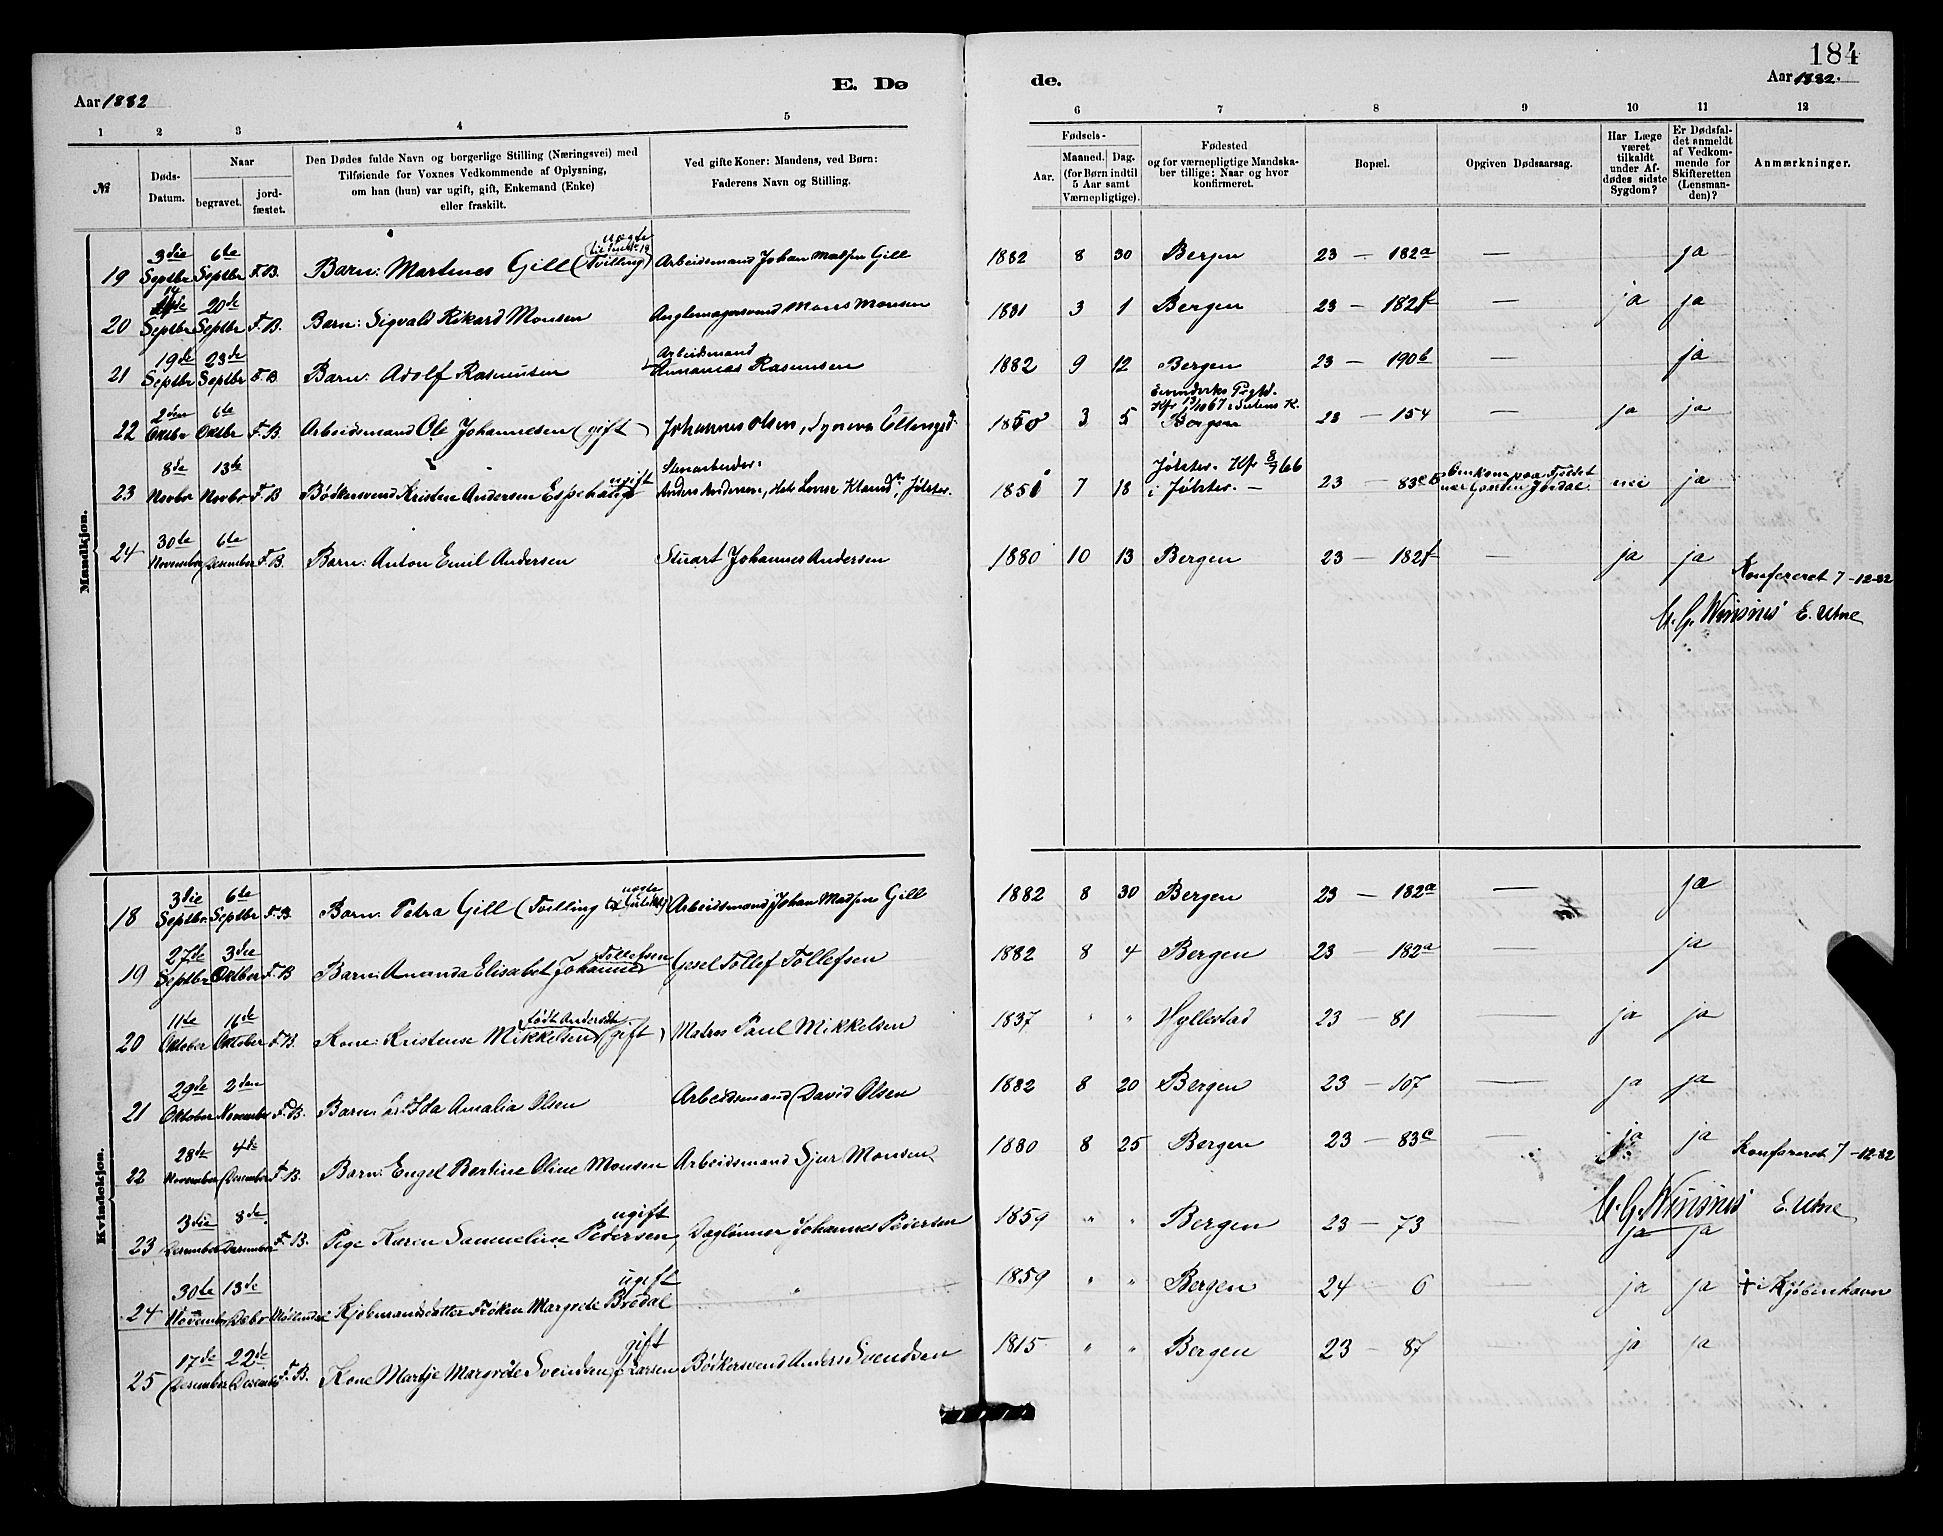 184
Aar 1882
E. Dø
de.
Aar 1882.
1 2 3 4 5 6 7 8 9 10 11 12
№
Døds-
Datum.
Naar
begravet.
jord-
fæstet.
Den Dødes fulde Navn og borgerlige Stilling (Næringsvei) med
Tilføiende for Voxnes Vedkommende af Oplysning,
om han (hun) var ugift, gift, Enkemand (Enke)
eller fraskilt.
Ved gifte Koner: Mandens, ved Børn:
Faderens Navn og Stilling.
Fødsels-
Aar.
Maaned. Dag.
(for Børn indtil
5 Aar samt
Værnepligtige).
Fødested
og for værnepligtige Mandska-
ber tillige: Naar og hvor
konfirmeret.
Bopæl.
Opgiven Dødsaarsag.
Har Læge
været
tilkaldt
under Af-
dødes sidste
Sygdom?
Er Dødsfal-
det anmeldt
af Vedkom-
mende for
Skifteretten
(Lensman-
den)?
Anmærkninger.
Mandkjøn.
3die 6te uægte
19 Septbr Septbr F.B. Barn: Martines Gill (Tvilling) Arbeidsmand Johan Madsen Gill 1882 8 30 Bergen 23 — 182a — ja
14 20de
20 Septbr Septbr F.B. Barn: Sigvald Rikard Monsen Mons Monsen 1881 3 1 Bergen 23 — 182f — ja ja
19de 23de Arbeidsmand
21 Septbr Septbr F.B Barn: Adolf Rasmusen Annanias Rasmusen 1882 9 12 Bergen 23 — 190b — ja
2den 6te
22 Oktbr Oktbr F.B. Arbeidsmand Ole Johannesen (gift) Johannes Olsen, 1850 3 5 Bergen 23 — 154 — ja ja
8de 13de ugift Stenarbeider. Jølster.
23 Novbr Novbr F.B. Bødkersvend Kristen Andersen Espehaug Anders Andersen, Jølster. 1851 7 18 i Jølster. — 23 — 83c nei ja
30te 6te
24 November Desember F.B. Barn: Anton Emil Andersen Stuart Johannes Andersen 1880 10 13 Bergen 23 — 182f — ja ja
Konfereret 7-12-82
E. Utne
Kvindekjøn.
3die 6te uægte
18 Septbr Septbr F.B Barn: Petra Gill (Tvilling Arbeidsmand Johan Madsen Gill 1882 8 30 Bergen 23 — 182a — ja
27de 3die Tollefsen
19 Septbr Oktber F.B Barn: Amanda Elisabet Johanne Gesel Tollef Tollefsen 1882 8 4 Bergen 23 — 182a — ja
11te 16de født Andersd.
20 Oktober Oktober F.B. Kone: Kristense Mikkelsen (gift) Matros Paul Mikkelsen 1837 " " Hyllestad 23 — 81 — ja ja
29de 2den
21 Oktober November F.B. Barn: Ida Amalia Olsen Arbeidsmand David Olsen 1882 8 20 Bergen 23 — 107 — ja ja
28de 4de
22 November Desember F.B. Barn: Engel Bertine Oline Monsen Arbeidsmand Sjur Monsen 1880 8 25 Bergen 23 — 83c — ja ja Konfereret 7-12-82
3die 8de ugift E. Utne
23 Desember Desember F.B. Pige Karen Sammeline Pedersen, Daglønner Johannes Pedersen 1859 " " Bergen 23 — 73 — ja ja
30te 13de ugift
24 November Debr Kjøbmandsdatter Frøken Margrete Bredal " 1859 " " Bergen 24 — 6 — ja ja † i Kjøbenhavn
17de 22de gift
25 Desember Desember F.B. Kone Martje Margrete Svendsen, f. Larsen Bødkersvend Anders Svendsen 1815 " " Bergen 23 — 87 — ja ja